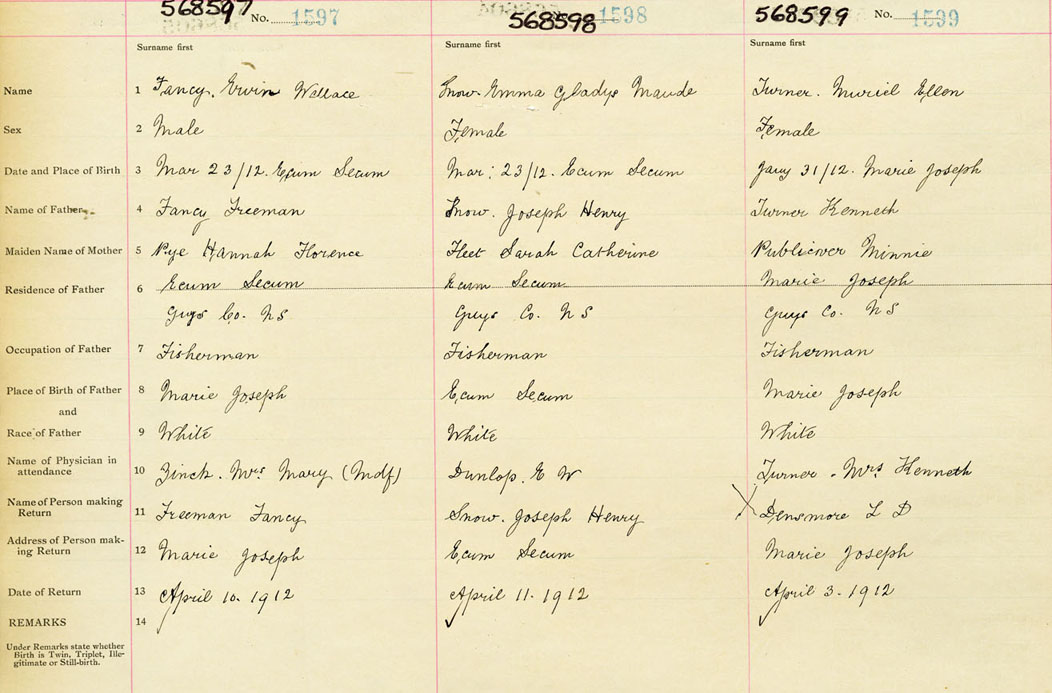 568597 No. 1597
568598 1598
568599 No. 1599
Surname first
Surname first
Surname first
Name 1 Fancy, Ervin Wallace
Snow. Emma Gladys Maude
Turner. Muriel Ellen
Sex 2 Male
Female
Female
Date and Place of Birth 3 Mar 23/12. Ecum Secum
Mar: 23/12. Ecum Secum
Jany 31/12. Marie Joseph
Name of Father 4 Fancy Freeman
Snow. Joseph Henry
Turner Kenneth
Maiden Name of Mother 5 Pye Hannah Florence
Fleet Sarah Catherine
Publicover Minnie
Residence of Father 6 Ecum Secum
Guys Co. NS
Ecum Secum
Guys Co. NS
Marie Joseph
Guys Co. NS
Occupation of Father 7 Fisherman
Fisherman
Fisherman
Place of Birth of Father 8 Marie Joseph
Ecum Secum
Marie Joseph
and
Race of Father 9 White
White
White
Name of Physician in
attendance 10 Zinck. Mrs Mary (Mdf)
Dunlop. E W
Turner. Mrs Kenneth
Name of Person making
Return 11 Freeman Fancy
Snow. Joseph Henry
X Densmore L D
Address of Person mak-
ing Return 12 Marie Joseph
Ecum Secum
Marie Joseph
Date of Return 13 April 10. 1912
April 11. 1912
April 3. 1912
REMARKS 14
Under Remarks state whether
Birth is Twin, Triplet, Ille-
gitimate or Still-birth.